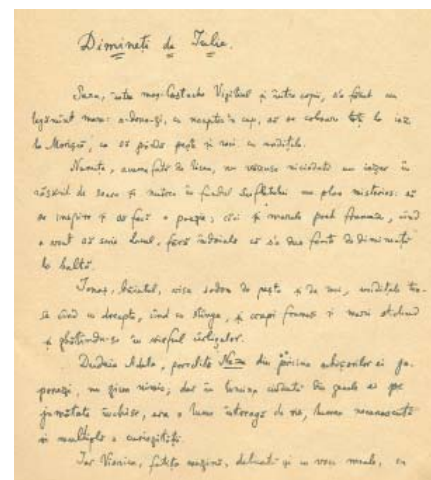 Dimineți de Iulie.
Seara, între moș Costache Vizitiul și între copii, s'a făcut un
legământ mare: a-doua-zi, cu noaptea'n cap, să se coboare toți la iaz
la Morișcă, ca să prindă pește și raci cu undițele.
Nanuța, avea fată de liceu, nu văzuse niciodată un iezer în
răsărit de soare și nutrea în fundul sufletului un plan misterios: să
se inspire și să facă o poezie; căci și marele poet francez, când
a vrut să scrie Lacul, fără îndoială că s'a dus foarte de dimineață
la baltă.
Ionaș, băiatul, visa sodom de pește și de raci, undițele tra-
se când cu dreapta, când cu stânga, și crapi frumoși și mari sticlind
și sbătându-se în vârful cârligelor.
Duduia Adela, poreclită din pricina ochișorilor ei ja-
ponezi, nu zicea nimic; dar în lumina ciudată din genele ei pe
jumătate închise, era o lume întreagă de vis, lumea necunoscută
și multiplă a curiozității.
Iar Viorica, fetița mezină, delicată și cu voce moale, cu